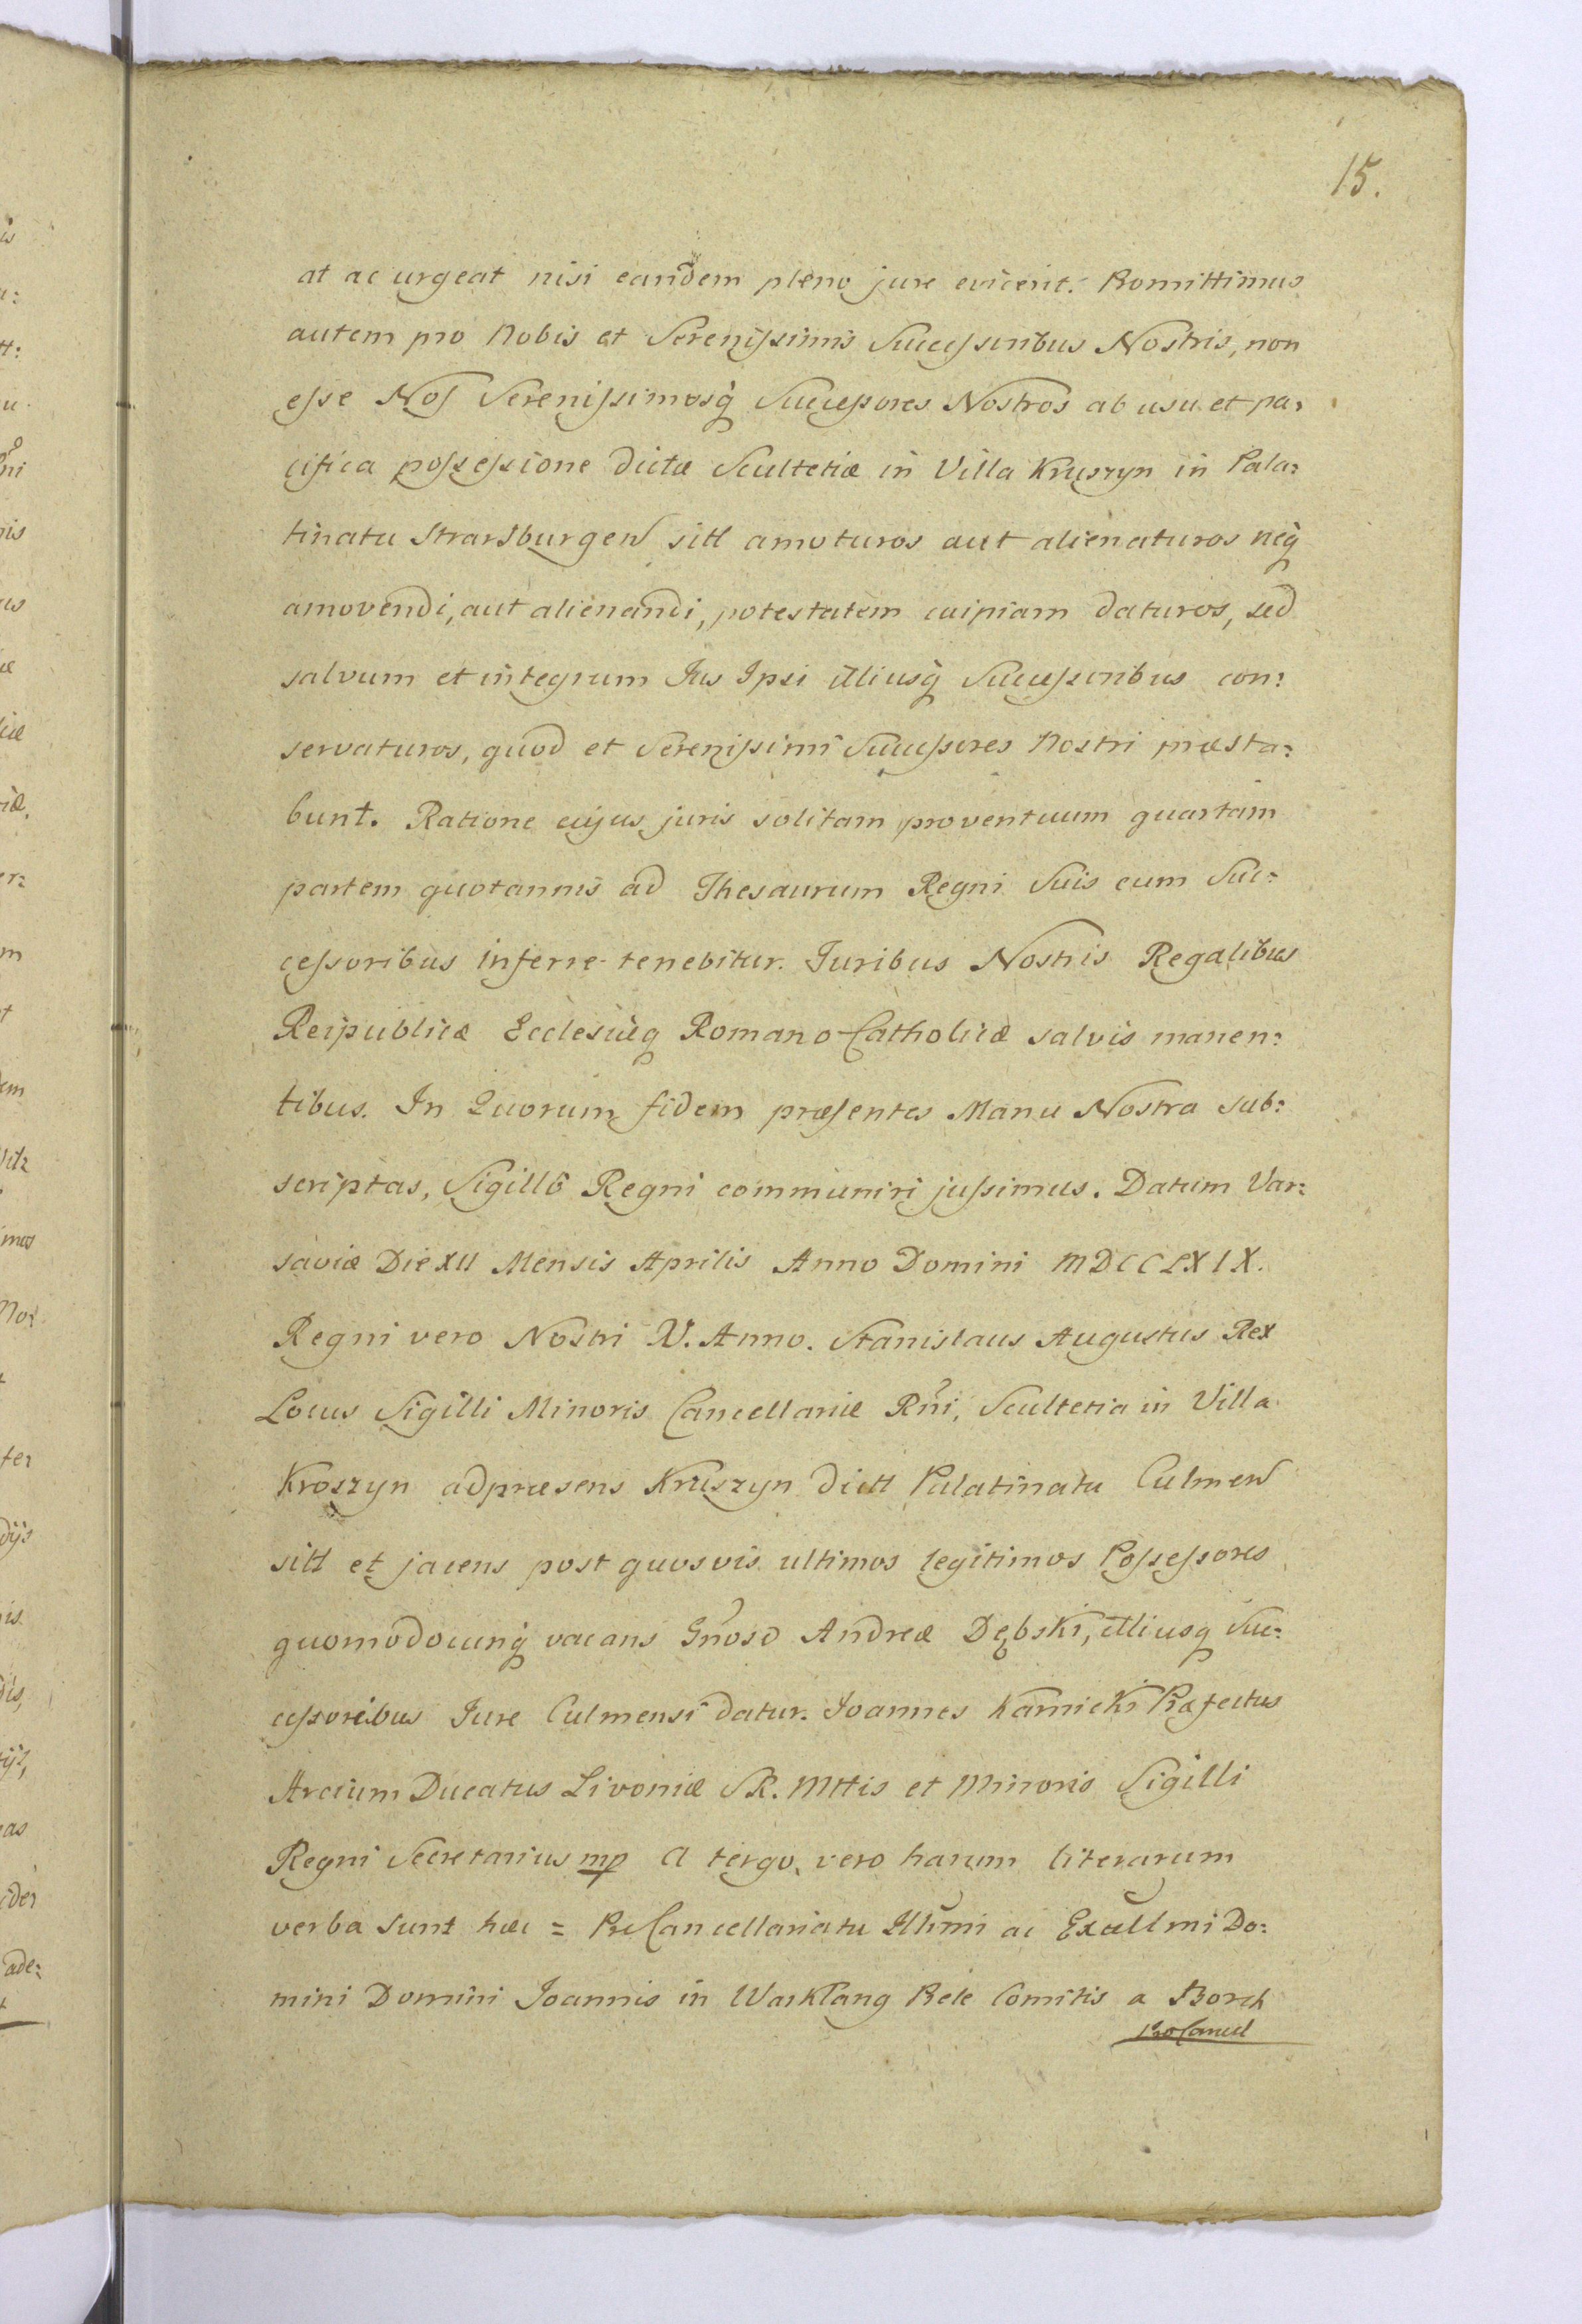 15.
at ac urgeat nisi eandem pleno jure evicerit. Promittimus
autem pro Nobis et Serenissimis Successoribus Nostris, non
esse Nos Serenissimosq Successores Nostros ab usu et pa:
cifica possessione dictæ Scultetiæ in Villa Kruszyn in Pala:
tinatu Strasburgen sitt amoturos aut alienaturos neq
amovendi, aut alienandi, potestatem cuipiam daturos, sed
salvum et integrum Jus Ipsi illiusq Successoribus con:
servaturos, quod et Serenissimi Successores Nostri præsta:
bunt. Ratione cujus juris solitam proventuum quartam
partem quotannis ad Thesaurum Regni Suis cum Suc:
cessoribus inferre tenebitur. Juribus Nostris Regalibus
Reipublicæ Ecclesiæq Romano-Catholicæ salvis manen:
tibus. In Quorum fidem præsentes Manu Nostra sub:
scriptas, Sigillo Regni communiri jussimus. Datum Var:
saviæ Die XII Mensis Aprilis Anno Domini MDCCLXIX.
Regni vero Nostri V. Anno. Stanislaus Augustus Rex
Locus Sigilli Minoris Cancellariæ Rni, Scultetia in Villa
Kroszyn adpræsens Kruszyn dictt Palatinatu Culmen
sitt et jacens post quosvis ultimos legitimos Possessores
quomodocunq vacans Gnoso Andreæ Dębski, illiusq Suc:
cessoribus Jure Culmensi datur. Joannes Karnicki Præfectus
Arcium Ducatus Livoniæ S.R. Mttis et Minoris Sigilli
Regni Secretarius mp A tergo vero harum literarum
verba sunt hæc = Pro Cancellariatu Illmi ac Excellmi Do:
mini Domini Joannis in Warkląng Bele Comitis a Borch
ProCancel